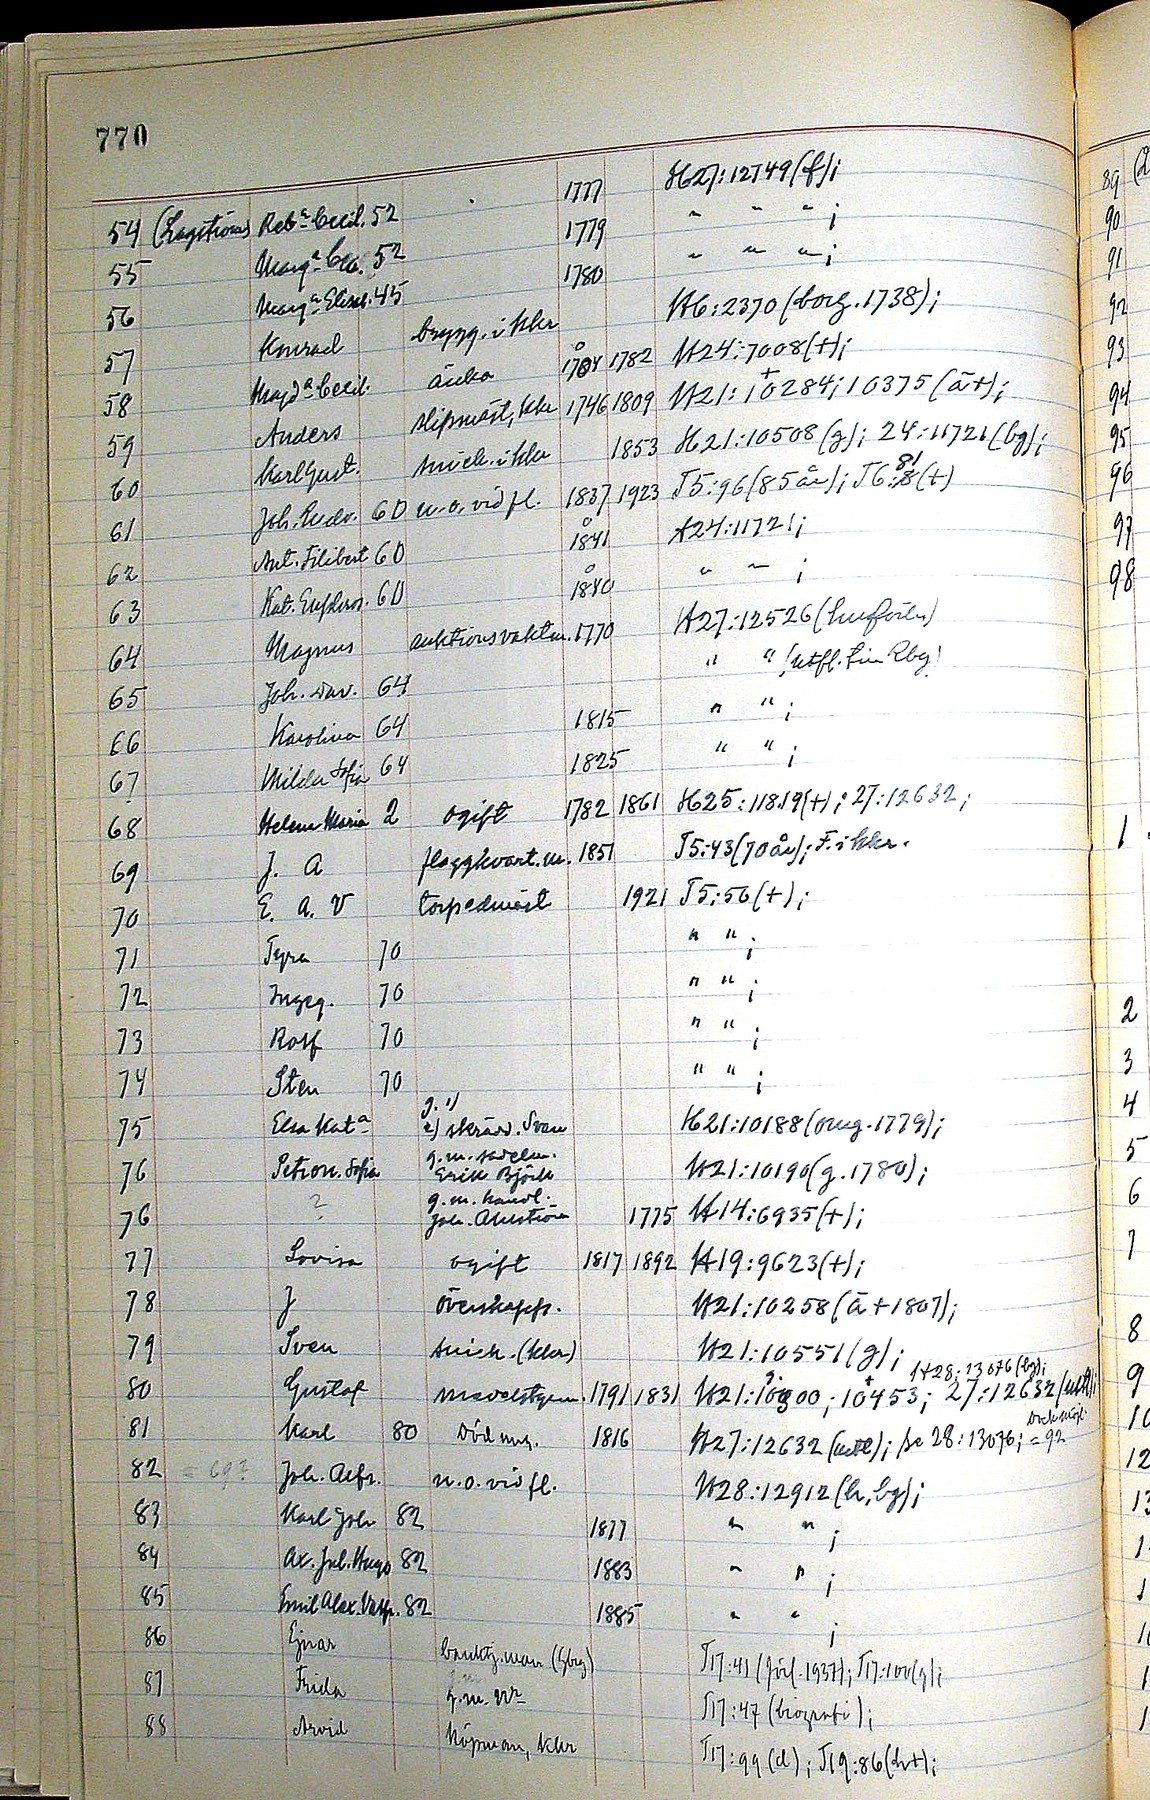 770
54 (Lagström) Reb.a Cecil. 52 1777 H27:12749(f);
55 Marg.a Cec. 52 1779 " " " ;
56 Marg.a Elisab. 45 1780 " " " ;
57 Konrad brygg. i kkr H6:2370 (borg. 1738);
58 Magd.a Cecil. änka 1704 1782 H24:7008(+);
59 Anders skepmäst, kkr 1746 1809 H21:10284; 10375 (ä+);
60 Karl Gust. snick. i kkr 1853 H21:10508 (g); 24:11721 (bg);
61 Joh. Ludv. 60 u.o. vid fl. 1837 1923 T5:96 (85 år); T6:81 (+)
62 Ant. Filibert 60 1841 H24:11721;
63 Kat. Eufros. 60 1840 " " ;
64 Magnus auktionsvaktm. 1770 H27:12526
65 Joh. Dav. 64 " " (utfl. Rbg)
66 Karolina 64 1815 " " ;
67 Milda Sofia 64 1825 " " ;
68 Helena Maria 2 ogift 1782 1861 H25:11819(+); 27:12632;
69 J. A flaggkvart.m. 1851 T5:43 (70 år); F. i kkr.
70 E. A. V torpedmäst 1921 T5:56 (+);
71 Tyra 70 " " ;
72 Ingeg. 70 " " ;
73 Rolf 70 " " ;
74 Sten 70 " " ;
75 Elsa Kat.a g. 1) 2) skrädd. Sven H21:10188 (omg. 1779);
76 Petron. Sofia g.m. sadelm. Erik Björk H21:10190 (g. 1780);
76 ? g.m. handl. Joh. Ahlström 1775 H14:6935 (+);
77 Lovisa ogift 1817 1892 H19:9623 (+);
78 J överskepp. H21:10258 (ä + 1807);
79 Sven snick. (kkr) H21:10551 (g);
80 Gustaf 1791 1831 H21:10300; 10453; 27:12632 H28:13076 (bg);
81 Karl 80 1816 H27:12632; se 28:13076; = 92
82 = 69? Joh. Alfr. u.o. vid fl. H28:12912 (h, bg);
83 Karl Joh 82 1877 " " ;
84 Ax. Jul. Hugo 82 1883 " " ;
85 Emil Alex. Valfr. 82 1885 " " ;
86 Ejnar banktj.man (Gbg) T17:41 (förl. 1937); T17:100 (g);
87 Frida g.m. T17:47 (biografi);
88 Arvid köpman, kkr T17:99 (d); T19:86 (h+);
89
90
91
92
93
94
95
96
97
98
1
2
3
4
5
6
7
8
9
10
12